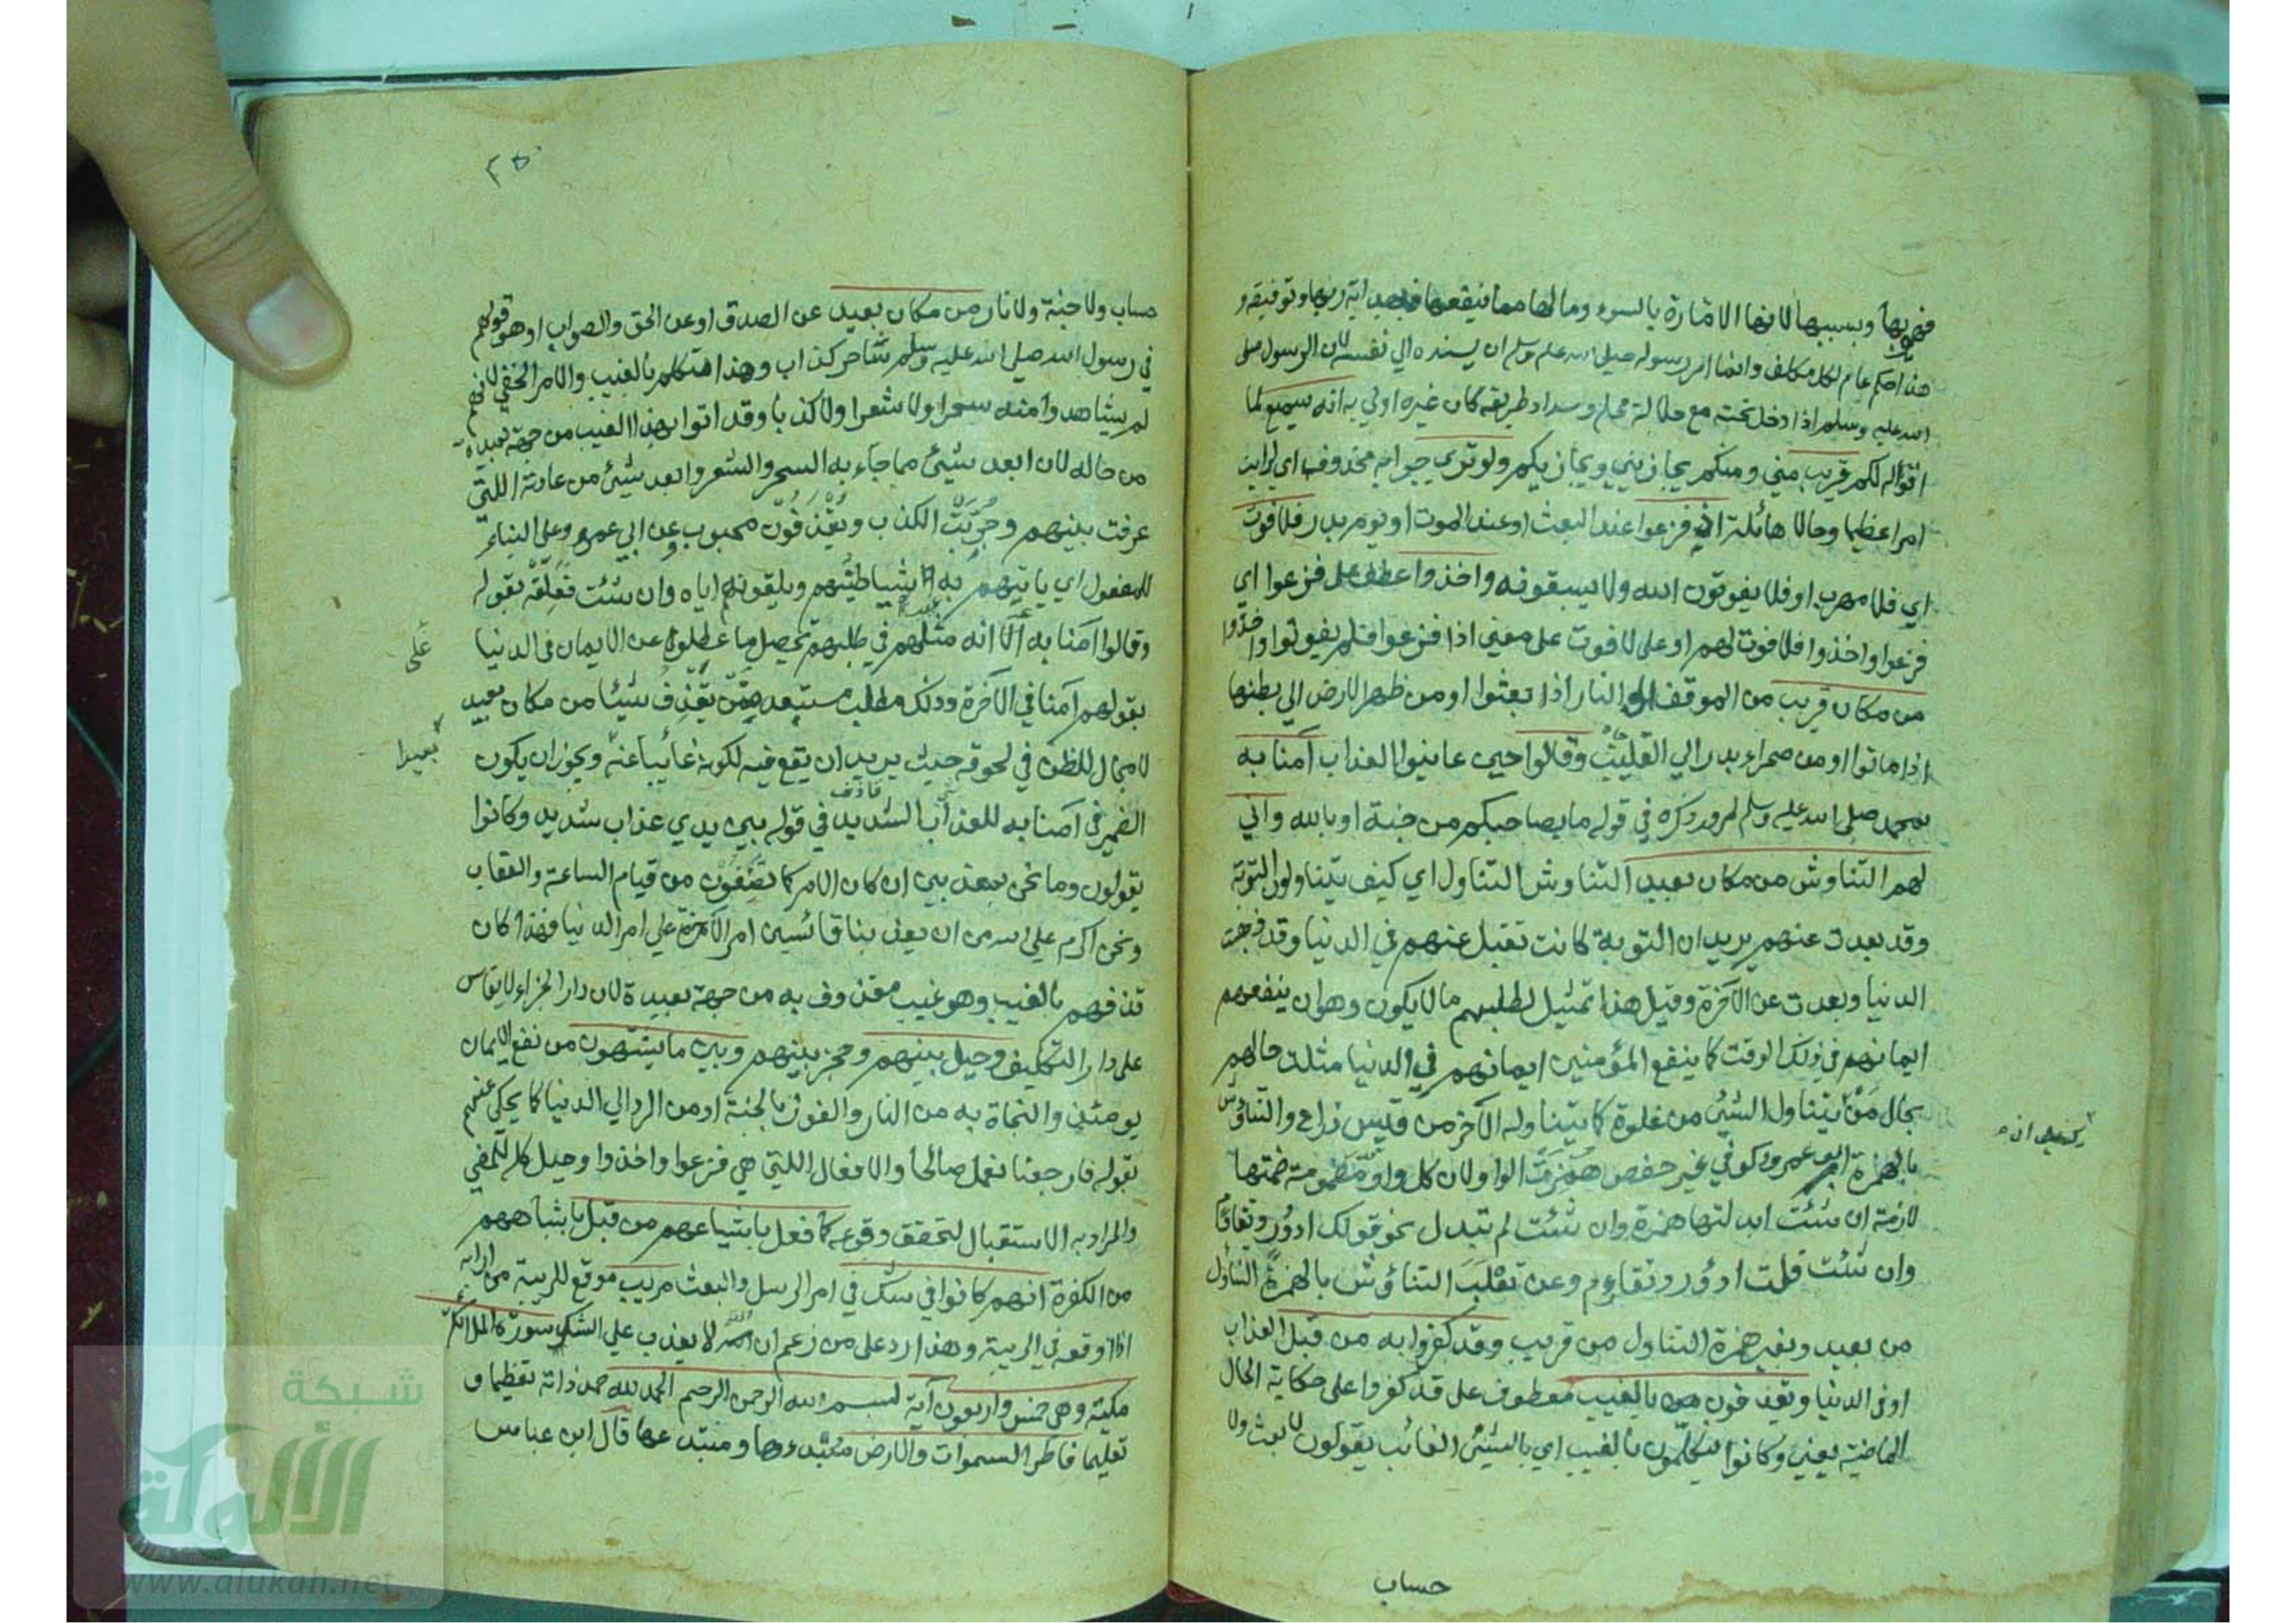 فهو بها وبسببها لانها الامارة بالسوء وما لها مما ينفعها فبهداية ربها وتوفيقه و
هذا حكم عام لكل مكلف وانما امر رسوله صلى الله عليه وسلم ان يسنده الى نفسه لان الرسول صلى
الله عليه وسلم اذا دخل تحته مع جلالة محله وسداد طريقه كان غيره اولى به انه سميع لما
اقوله لكم قريب مني ومنكم يجازيني ويجازيكم ولو ترى جوابه محذوف اي لرايت
امرا عظيما وحالا هائلة اذ فزعوا عند البعث او عند الموت او يوم بدر فلا فوت
اي فلا مهرب او فلا يفوتون الله ولا يسبقونه واخذوا عطف على فزعوا اي
فزعوا واخذوا فلا فوت لهم او على لا فوت على معنى اذا فزعوا فلم يفوتوا واخذوا
من مكان قريب من الموقف الى النار اذا بعثوا او من ظهر الارض الى بطنها
اذا ماتوا او من صحراء بدر الى القليب وقالوا حين عاينوا العذاب آمنا به
بمحمد صلى الله عليه وسلم لمرور ذكره في قوله ما بصاحبكم من جنة او بالله وانى
لهم التناوش من مكان بعيد التناوش التناول اي كيف يتناولون التوبة
وقد بعدت عنهم يريد ان التوبة كانت تقبل عنهم في الدنيا وقد ذهبت
الدنيا وبعدت عن الآخرة وقيل هذا تمثيل لطلبهم ما لا يكون وهو ان ينفعهم
ايمانهم في ذلك الوقت كما ينفع المؤمنين ايمانهم في الدنيا مثلت حالهم
بحال من يتناول الشيئ من غلوة كما يتناوله الآخر من قيس ذراع والتناؤش
بالهمزة ابو عمرو وكوفي غير حفص همزت الواو لان كل واو مضمومة ضمتها
لازمة ان شئت ابدلتها همزة وان شئت لم تبدل نحو قولك ادور وتقاوم
وان شئت قلت ادؤر وتقاؤم وعن ثعلب التناؤش بالهمزة التناول
من بعيد وبغير همزة التناول من قريب وقد كفروا به من قبل العذاب
او في الدنيا ويقذفون بالغيب معطوف على قد كفروا على حكاية الحال
الماضية يعني وكانوا يتكلمون بالغيب اي بالشيئ الغائب يقولون لا بعث ولا
حساب
حساب ولا جنة ولا نار من مكان بعيد عن الصدق او عن الحق والصواب او هو قولهم
في رسول الله صلى الله عليه وسلم شاعر كذاب وهذا تكلم بالغيب والامر الخفي لانهم
لم يشاهدوا منه سحرا ولا شعرا ولا كذبا وقد اتوا بهذا الغيب من جهة بعيدة
من حاله لان ابعد شيئ مما جاء به السحر والشعر وابعد شيئ من عادته اللتي
عرفت بينهم وجربت الكذب ويقذفون محبوب عن ابي عمرو على البناء
للمفعول اي ياتيهم به شياطينهم ويلقونهم اياه وان شئت فعلقه بقوله
وقالوا آمنا به على انه مثلهم في طلبهم تحصيل ما عطلوه عن الايمان في الدنيا
على
بقولهم آمنا في الآخرة وذلك مطلب مستبعد بمن يقذف شيئا من مكان بعيد
لا مجال للظن في لحوقه حيث يريد ان يقع فيه لكونه غائبا عنه ويجوز ان يكون
بعيدا
الضمير في آمنا به للعذاب الشديد في قوله بين يدي عذاب شديد وكانوا
يقولون وما نحن بمعذبين ان كان الامر كما تصفون من قيام الساعة والعقاب
ونحن اكرم على الله من ان يعذبنا قائسين امر الآخرة على امر الدنيا فهذا كان
قذفهم بالغيب وهو غيب مقذوف به من جهة بعيدة لان دار الجزاء لا يقاس
على دار التكليف وحيل بينهم وحجز بينهم وبين ما يشتهون من نفع الايمان
يومئذ والنجاة به من النار والفوز بالجنة او من الرد الى الدنيا كما يحكى عنهم
بقوله فارجعنا نعمل صالحا والافعال اللتي هي فزعوا واخذوا وحيل كله للمضي
والمراد به الاستقبال لتحقق وقوعه كما فعل باشياعهم من قبل باشباههم
من الكفرة انهم كانوا في شك في امر الرسل والبعث مريب موقع للريبة من ارابه
اذا اوقعه في الريبة وهذا رد على من زعم ان الله لا يعذب على الشك سورة الملائكة
مكية وهي خمس واربعون آية بسم الله الرحمن الرحيم الحمد لله حمد ذاته تعظيما و
تعليما فاطر السموات والارض مبتدءها ومبتدعها قال ابن عباس
شبكة
الألوكة
www.alukah.net